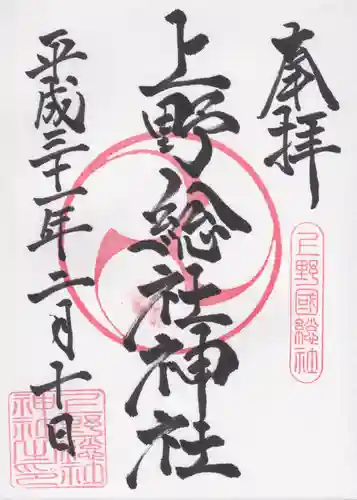 奉拝
上野國総社
上野総社神社
平成三十一年二月十日
上野総社神社之印